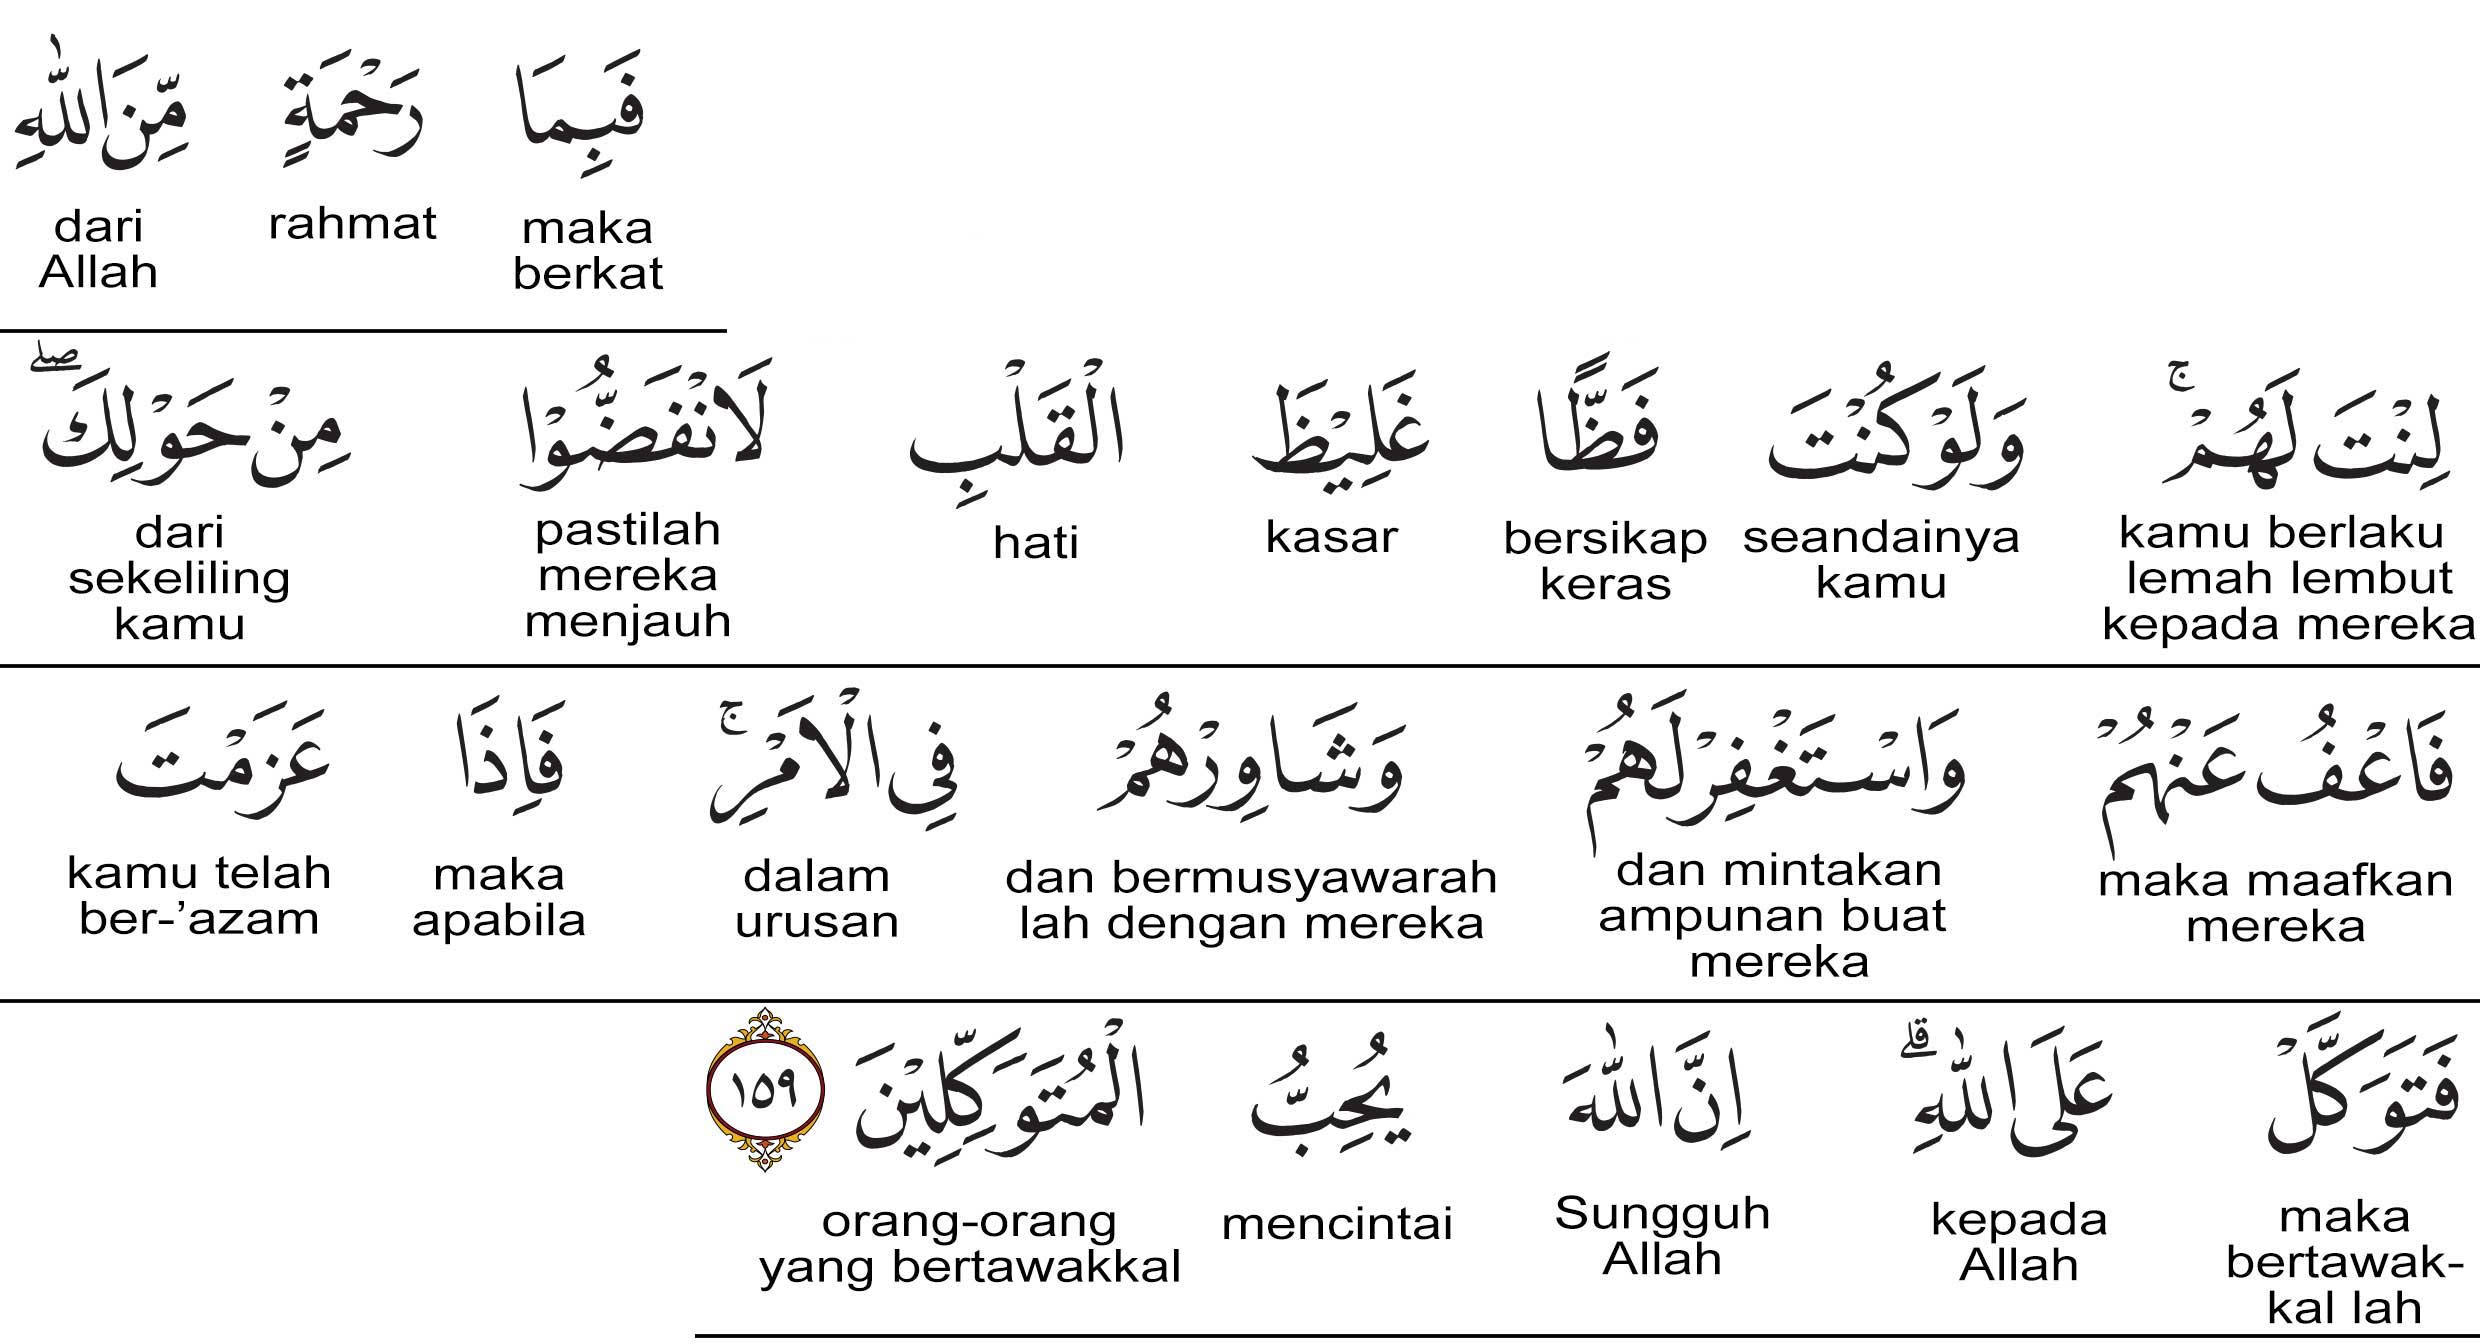 فَبِمَا رَحْمَةٍ مِّنَ اللّٰهِ
maka berkat rahmat dari Allah
لِنْتَ لَهُمْ ۚ وَلَوْ كُنْتَ فَظًّا غَلِيْظَ الْقَلْبِ لَانْفَضُّوْا مِنْ حَوْلِكَ ۖ
kamu berlaku lemah lembut kepada mereka seandainya kamu bersikap keras kasar hati pastilah mereka menjauh dari sekeliling kamu
فَاعْفُ عَنْهُمْ وَاسْتَغْفِرْ لَهُمْ وَشَاوِرْهُمْ فِى الْاَمْرِ ۚ فَاِذَا عَزَمْتَ
maka maafkan mereka dan mintakan ampunan buat mereka dan bermusyawarah lah dengan mereka dalam urusan maka apabila kamu telah ber-’azam
فَتَوَكَّلْ عَلَى اللّٰهِ ۗ اِنَّ اللّٰهَ يُحِبُّ الْمُتَوَكِّلِيْنَ ١٥٩
maka bertawak-kal lah kepada Allah Sungguh Allah mencintai orang-orang yang bertawakkal